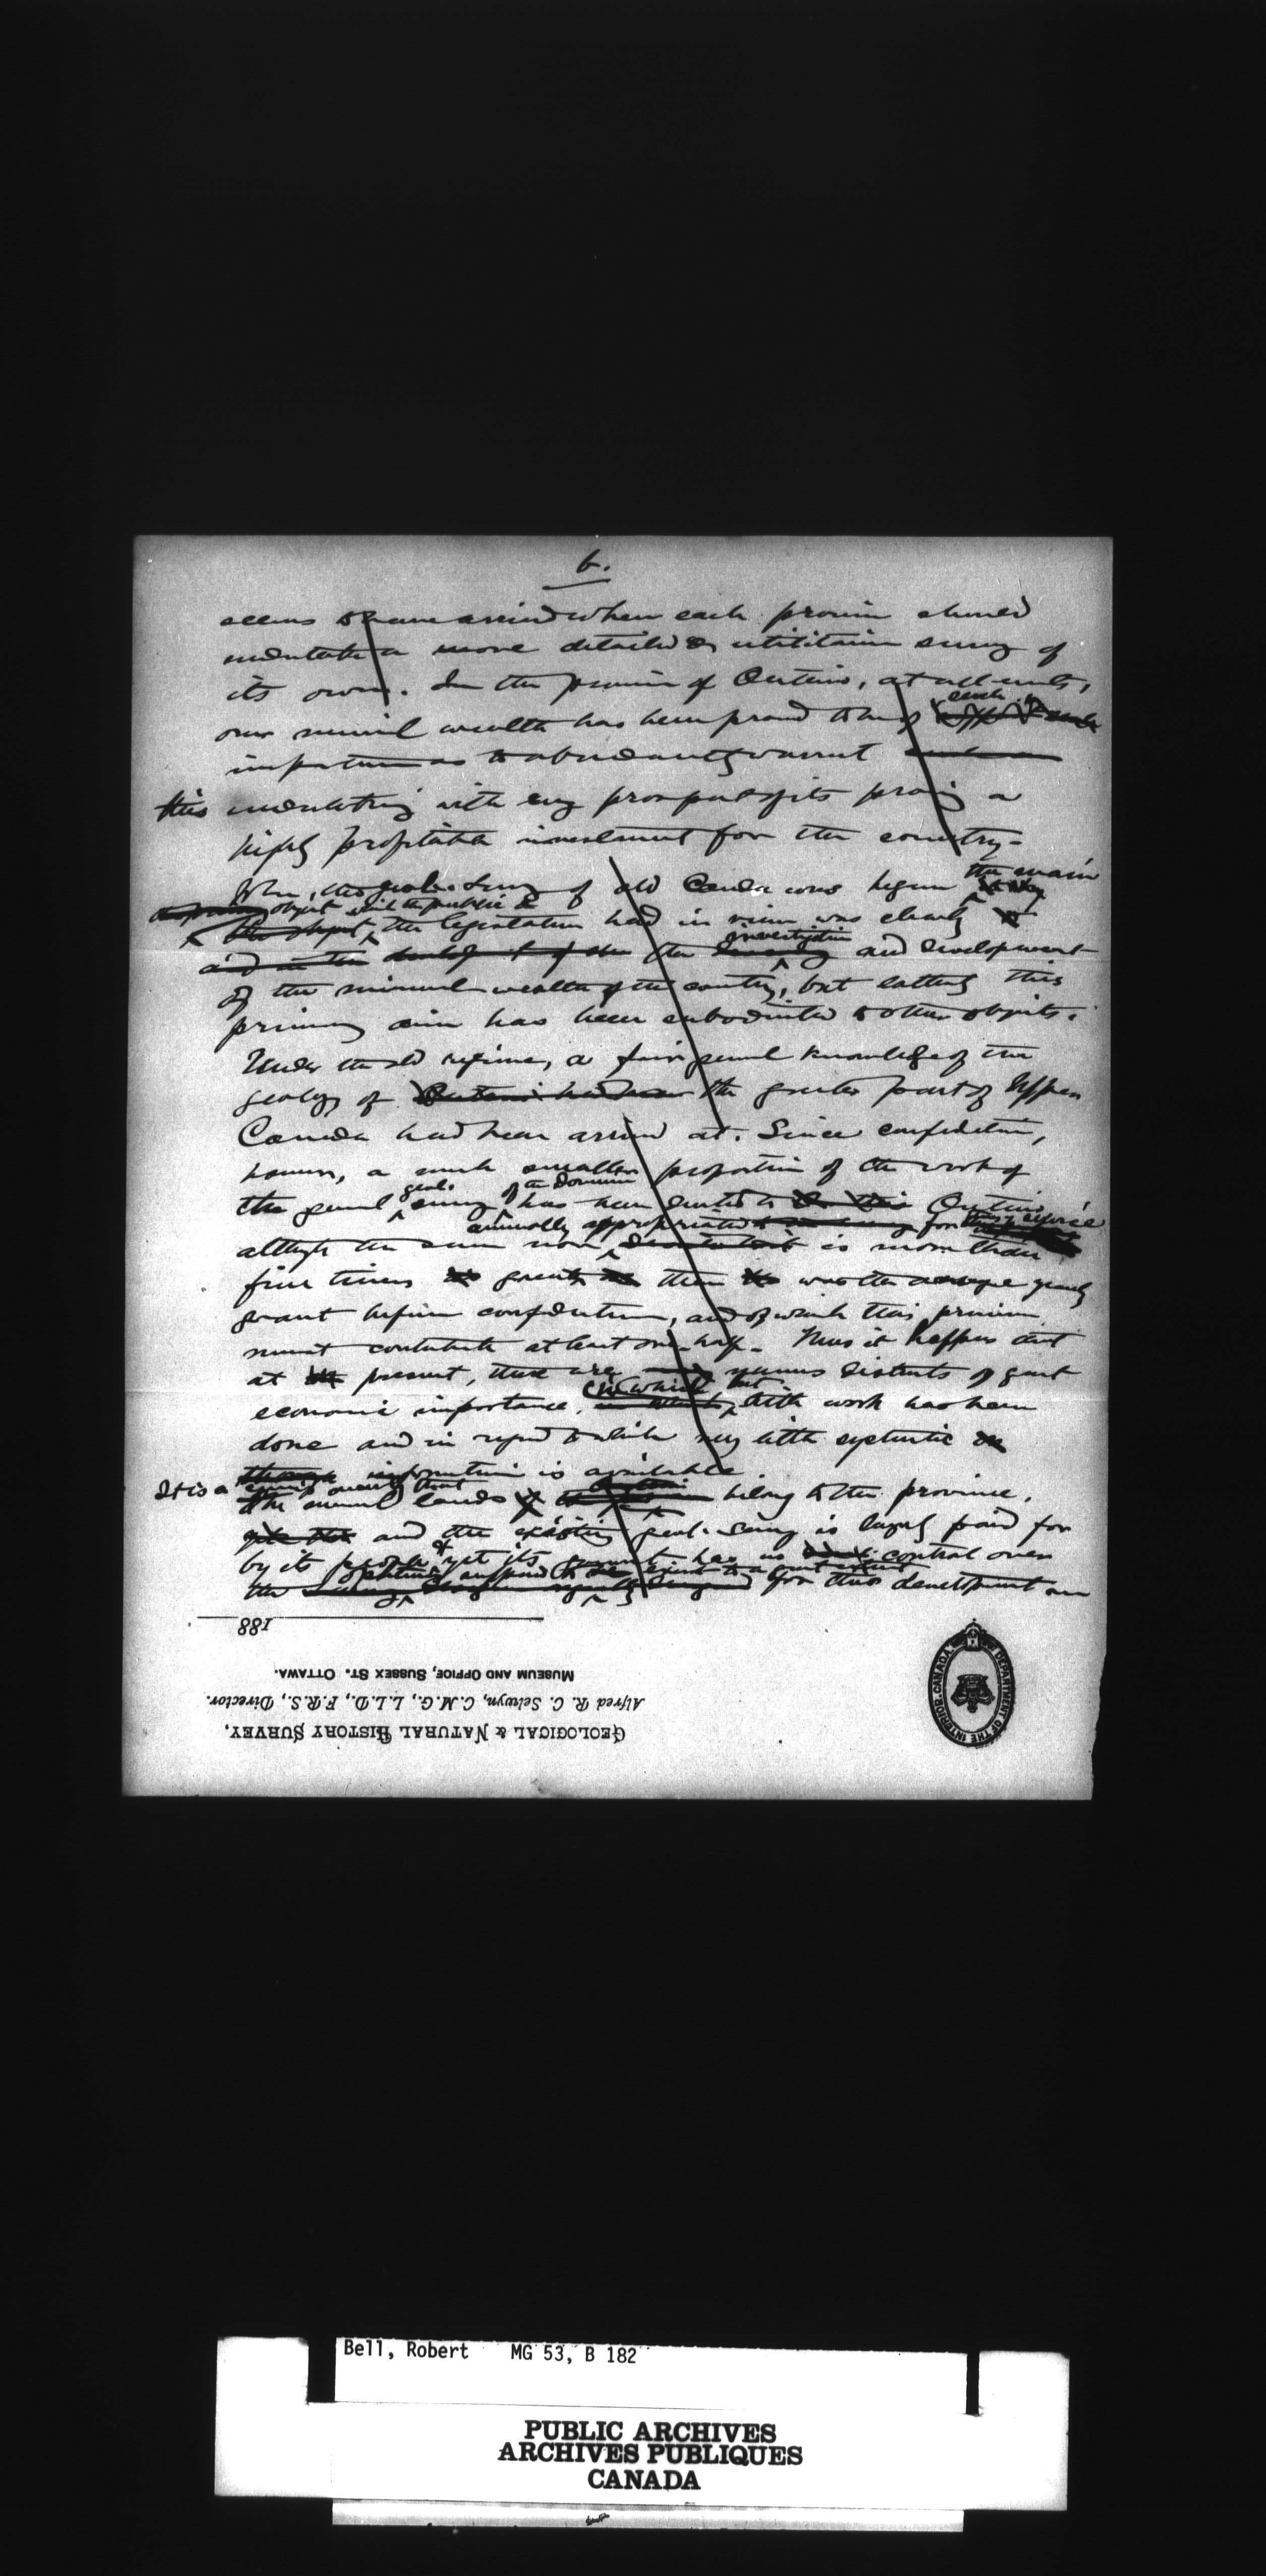 6.
seems to have arrived when each province should
undertake a more detailed & utilitarian survey of
its own. In the province of Ontario, at all events,
our mineral wealth has been proved to be of such
importance as to abundantly warrant
this undertaking with every prospect of its proving a
highly profitable investment for the country.
When the geol. Survey of old Canada was begun the main
object which the public &
the legislature had in view was clearly
the investigation and development
of the mineral wealth of the country, but latterly this
primary aim has been subordinated to other objects.
Under the old regime, a fair general knowledge of the
geology of the greater part of Upper
Canada had been arrived at. Since confederation,
however, a much smaller proportion of the work of
the general geol. survey of the Dominion has been devoted to Ontario
although the sum now annually appropriated for this service is more than
five times greater than was the average yearly
grant before confederation, and of which this province
must contribute at least one-half. Thus it happens that
at present, there are various districts of great
economic importance, on which but little work has been
done and in regard to which very little systematic
information is available.
It is a
the mineral lands of Ontario belong to the province,
and the existing geol. Survey is largely paid for
by its people & yet its government has no control over
the
for their development are
188
GEOLOGICAL & NATURAL HISTORY SURVEY,
Alfred R. C. Selwyn, C.M.G., L.L.D., F.R.S., Director.
MUSEUM AND OFFICE, SUSSEX ST. OTTAWA.
DEPARTMENT OF THE INTERIOR. CANADA.
Bell, Robert MG 53, B 182
PUBLIC ARCHIVES
ARCHIVES PUBLIQUES
CANADA